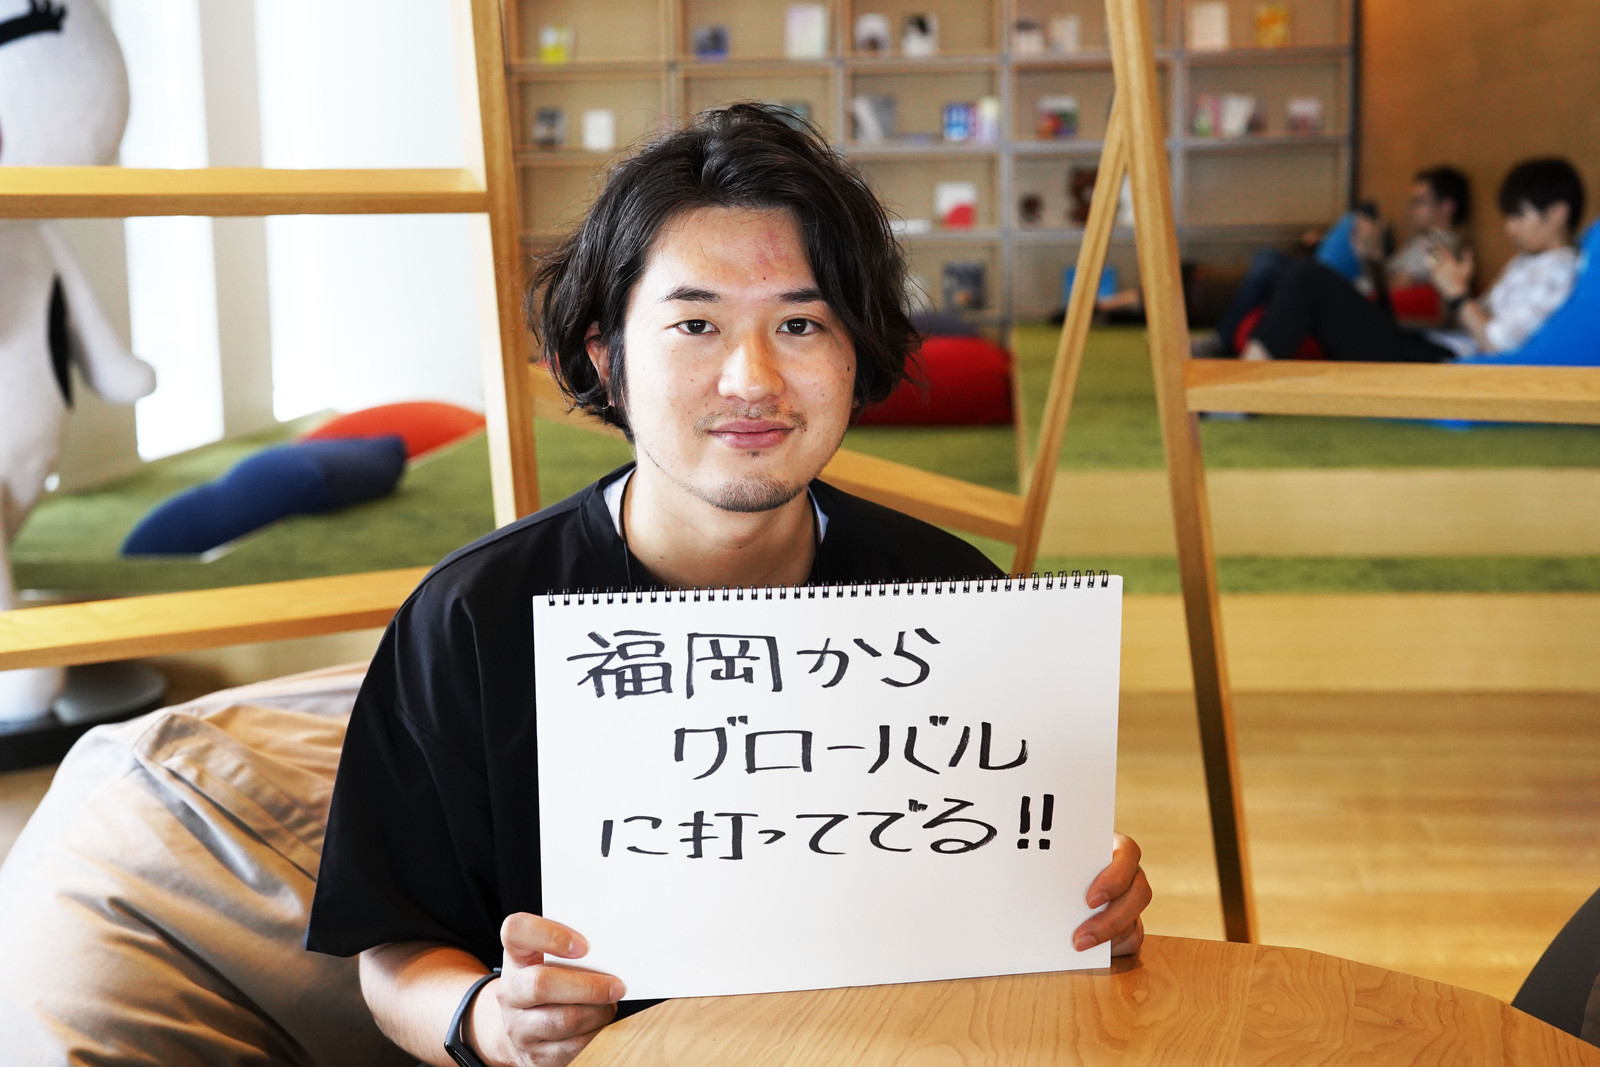 福岡から
グローバル
に打ってでる!!